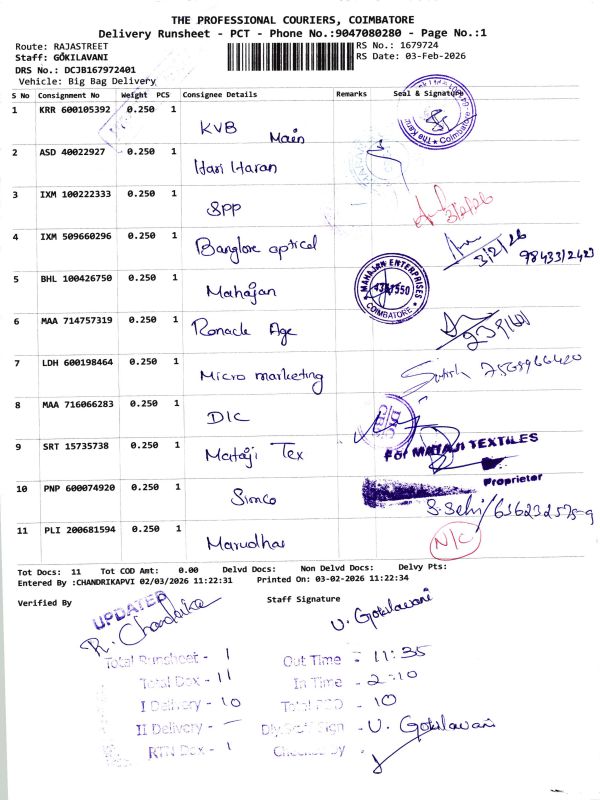 THE PROFESSIONAL COURIERS, COIMBATORE
Delivery Runsheet - PCT - Phone No.:9047080280 - Page No.:1
Route: RAJASTREET
RS No.: 1679724
Staff: GOKILAVANI
RS Date: 03-Feb-2026
DRS No.: DCJB167972401
Vehicle: Big Bag Delivery
S No Consignment No Weight PCS Consignee Details Remarks Seal & Signature
1 KRR 600105392 0.250 1 KVB Main
2 ASD 40022927 0.250 1 Hari Haran
3 IXM 100222333 0.250 1 SPP 3/2/26
4 IXM 509660296 0.250 1 Banglore optical 3/2/26
5 BHL 100426750 0.250 1 Mahajan MAHAJAN ENTERPRISES COIMBATORE
6 MAA 714757319 0.250 1 Ronacle Age
7 LDH 600198464 0.250 1 Micro marketing
8 MAA 716066283 0.250 1 DIC
9 SRT 15735738 0.250 1 Mataji Tex For MATAJI TEXTILES
Proprietor
10 PNP 600074920 0.250 1 Simco
11 PLI 200681594 0.250 1 Marudhar N/C
Tot Docs: 11 Tot COD Amt: 0.00 Delvd Docs: Non Delvd Docs: Delvy Pts:
Entered By :CHANDRIKAPVI 02/03/2026 11:22:31 Printed On: 03-02-2026 11:22:34
Verified By Staff Signature
UPDATED
R. Chandrika U. Gokilavani
Total Runsheet - 1 Out Time - 11:35
Total Dox - 11 In Time - 2:10
I Delivery - 10 Total POD - 10
II Delivery - — Dly.Staff Sign - U. Gokilavani
RTN Dox - 1 Checked By -